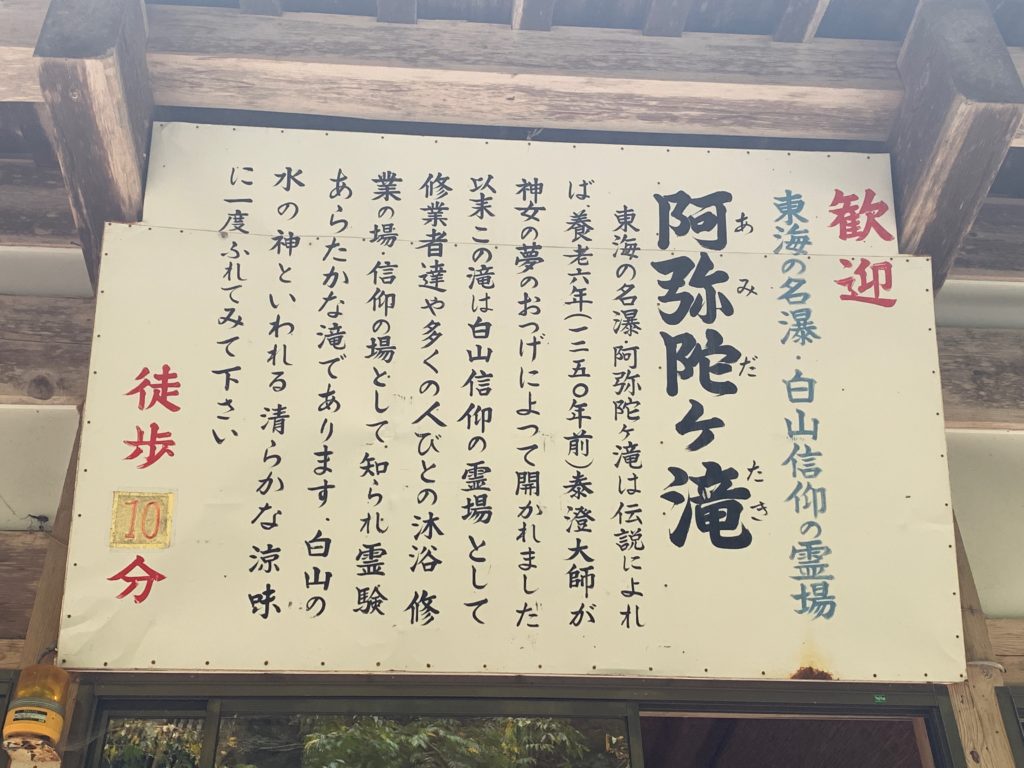 歓迎
東海の名瀑・白山信仰の霊場
阿弥陀ヶ滝
あみだたき
東海の名瀑・阿弥陀ヶ滝は伝説によれ
ば、養老六年(一二五〇年前)泰澄大師が
神女の夢のおつげによって開かれました
以末この滝は白山信仰の霊場として
修業者達や多くの人びとの沐浴修
業の場・信仰の場として、知られ霊験
あらたかな滝であります。白山の
水の神といわれる清らかな涼味
に一度ふれてみて下さい
徒歩10分